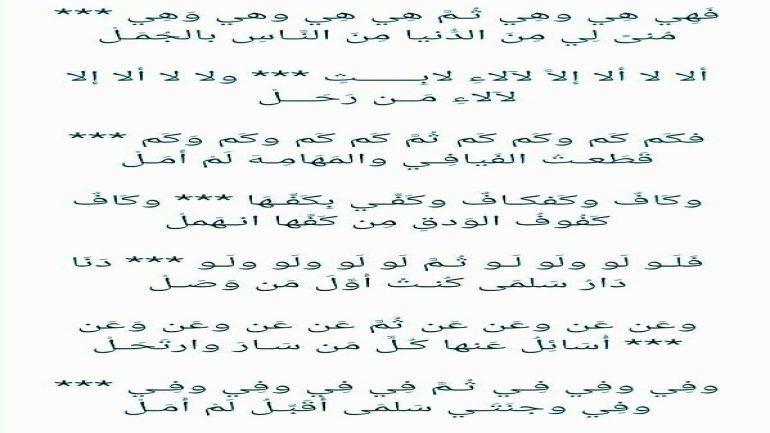 فَهِي هي وهي ثُمّ هي هي وهي وَهِي ***
مُنىً لِي مِنَ الدُنيا مِنَ النّاسِ بالجُمَلْ
ألا لا ألا إلاَّ لآلاءِ لابِثِ *** ولا لا ألا إلا
لآلاءِ مَن رَحَلْ
فكَم كَم وكَم كَم ثُمّ كَم كَم وكَم وَكَم ***
قَطَعتُ الفَيافي والمَهَامِهَ لَم أمَلْ
وكَافٌ وكَفكافٌ وكَفّي بِكَفِّهَا *** وكَافٌ
كَفُوفُ الوَدقِ مِن كَفّها انهَملْ
فَلَو لَو ولَو لَو ثُمّ لَو لَو ولَو ولَو *** دَنَا
دَارُ سَلمَى كُنتُ أوّلَ مَن وَصَلْ
وعَن عَن وعَن عَن ثُمّ عَن عَن وعَن وَعَن
*** أسَائِلُ عَنها كُلّ مَن سَارَ وارتَحَلْ
وفِي وفِي فِي ثُمّ فِي فِي وفِي وفِي ***
وفِي وجنَتَي سَلمَى أقَبِّلُ لَمْ أمَلْ